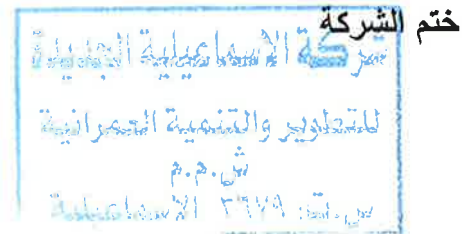 ختم الشركة
شركة الاسماعيلية الجديدة
للتطوير والتنمية العمرانية
ش.م.م
س.ت: ٣٦٧٩ الاسماعيلية